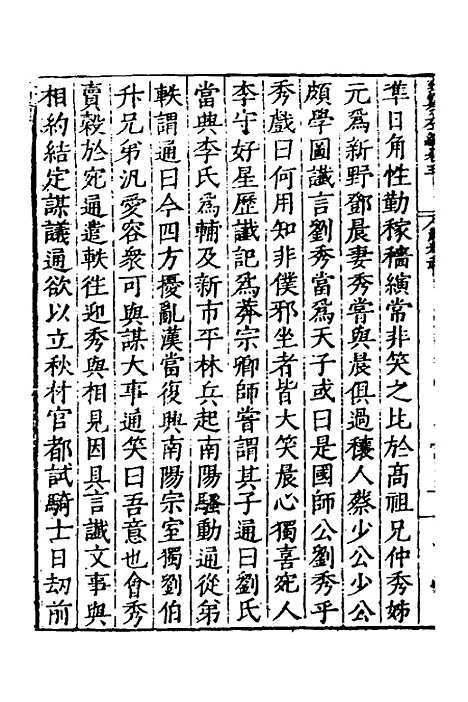 準日角性勤稼穡縯常非笑之比於高祖兄仲秀姊
元爲新野鄧晨妻秀嘗與晨俱過穰人蔡少公少公
頗學圖讖言劉秀當爲天子或曰是國師公劉秀乎
秀戲曰何用知非僕邪坐者皆大笑晨心獨喜宛人
李守好星歷讖記爲莽宗卿師嘗謂其子通曰劉氏
當興李氏爲輔及新市平林兵起南陽騷動通從弟
軼謂通曰今四方擾亂漢當復興南陽宗室獨劉伯
升兄弟汎愛容衆可與謀大事通笑曰吾意也會秀
賣穀於宛通遣軼往迎秀與相見因具言讖文事與
相約結定謀議通欲以立秋材官都試騎士日刧前